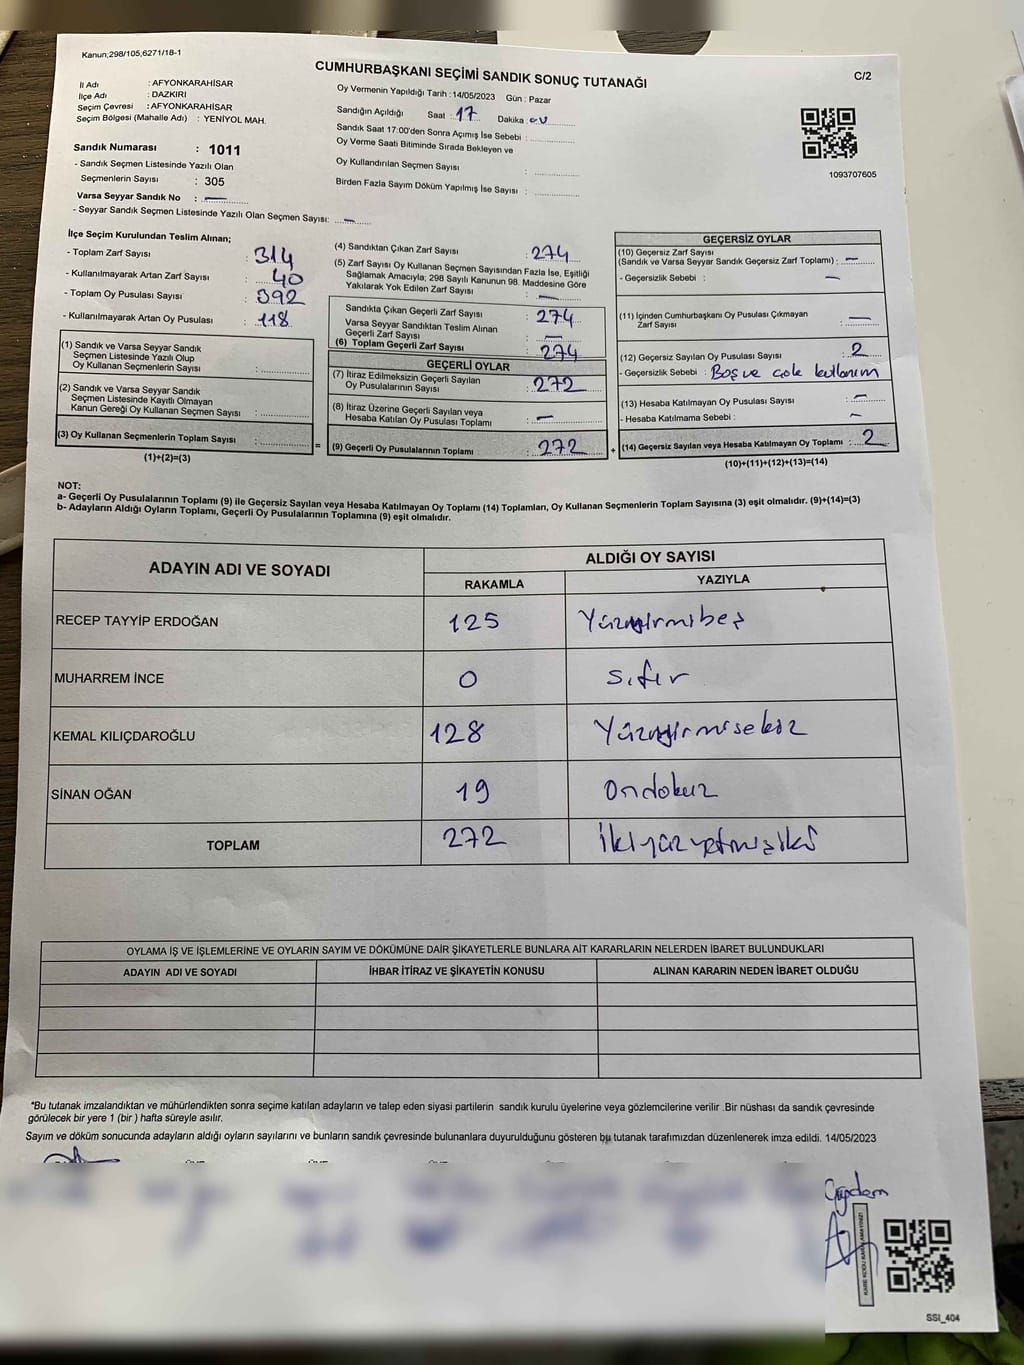 Kanun,298/105,6271/18-1
CUMHURBAŞKANI SEÇİMİ SANDIK SONUÇ TUTANAĞI
C/2
İl Adı : AFYONKARAHİSAR
İlçe Adı : DAZKIRI
Seçim Çevresi : AFYONKARAHİSAR
Seçim Bölgesi (Mahalle Adı) : YENİYOL MAH.
Oy Vermenin Yapıldığı Tarih : 14/05/2023 Gün : Pazar
Sandığın Açıldığı Saat : 17 Dakika :
Sandık Saat 17:00'den Sonra Açımış İse Sebebi :
Oy Verme Saati Bitiminde Sırada Bekleyen ve
Oy Kullandırılan Seçmen Sayısı :
Birden Fazla Sayım Döküm Yapılmış İse Sayısı :
1093707605
Sandık Numarası : 1011
- Sandık Seçmen Listesinde Yazılı Olan
Seçmenlerin Sayısı : 305
Varsa Seyyar Sandık No : —
- Seyyar Sandık Seçmen Listesinde Yazılı Olan Seçmen Sayısı: —
İlçe Seçim Kurulundan Teslim Alınan;
- Toplam Zarf Sayısı : 314
- Kullanılmayarak Artan Zarf Sayısı : 40
- Toplam Oy Pusulası Sayısı : 392
- Kullanılmayarak Artan Oy Pusulası : 118
(1) Sandık ve Varsa Seyyar Sandık
Seçmen Listesinde Yazılı Olup
Oy Kullanan Seçmenlerin Sayısı :
(2) Sandık ve Varsa Seyyar Sandık
Seçmen Listesinde Kayıtlı Olmayan
Kanun Gereği Oy Kullanan Seçmen Sayısı :
(3) Oy Kullanan Seçmenlerin Toplam Sayısı :
(1)+(2)=(3)
=
(4) Sandıktan Çıkan Zarf Sayısı : 274
(5) Zarf Sayısı Oy Kullanan Seçmen Sayısından Fazla İse, Eşitliği
Sağlamak Amacıyla; 298 Sayılı Kanunun 98. Maddesine Göre
Yakılarak Yok Edilen Zarf Sayısı : —
Sandıkta Çıkan Geçerli Zarf Sayısı : 274
Varsa Seyyar Sandıktan Teslim Alınan
Geçerli Zarf Sayısı : —
(6) Toplam Geçerli Zarf Sayısı : 274
GEÇERLİ OYLAR
(7) İtiraz Edilmeksizin Geçerli Sayılan
Oy Pusulalarının Sayısı : 272
(8) İtiraz Üzerine Geçerli Sayılan veya
Hesaba Katılan Oy Pusulası Toplamı : —
(9) Geçerli Oy Pusulalarının Toplamı : 272
+
GEÇERSİZ OYLAR
(10) Geçersiz Zarf Sayısı
(Sandık ve Varsa Seyyar Sandık Geçersiz Zarf Toplamı) : —
- Geçersizlik Sebebi : —
(11) İçinden Cumhurbaşkanı Oy Pusulası Çıkmayan
Zarf Sayısı : —
(12) Geçersiz Sayılan Oy Pusulası Sayısı : 2
- Geçersizlik Sebebi : Boş ve çok kullanım
(13) Hesaba Katılmayan Oy Pusulası Sayısı : —
- Hesaba Katılmama Sebebi : —
(14) Geçersiz Sayılan veya Hesaba Katılmayan Oy Toplamı : 2
(10)+(11)+(12)+(13)=(14)
NOT:
a- Geçerli Oy Pusulalarının Toplamı (9) ile Geçersiz Sayılan veya Hesaba Katılmayan Oy Toplamı (14) Toplamları, Oy Kullanan Seçmenlerin Toplam Sayısına (3) eşit olmalıdır. (9)+(14)=(3)
b- Adayların Aldığı Oyların Toplamı, Geçerli Oy Pusulalarının Toplamına (9) eşit olmalıdır.
ADAYIN ADI VE SOYADI ALDIĞI OY SAYISI
RAKAMLA YAZIYLA
RECEP TAYYİP ERDOĞAN 125 Yüzyirmibeş
MUHARREM İNCE 0 sıfır
KEMAL KILIÇDAROĞLU 128 Yüzyirmisekiz
SİNAN OĞAN 19 Ondokuz
TOPLAM 272 İkiyüzyetmişiki
OYLAMA İŞ VE İŞLEMLERİNE VE OYLARIN SAYIM VE DÖKÜMÜNE DAİR ŞİKAYETLERLE BUNLARA AİT KARARLARIN NELERDEN İBARET BULUNDUKLARI
ADAYIN ADI VE SOYADI İHBAR İTİRAZ VE ŞİKAYETİN KONUSU ALINAN KARARIN NEDEN İBARET OLDUĞU
*Bu tutanak imzalandıktan ve mühürlendikten sonra seçime katılan adayların ve talep eden siyasi partilerin sandık kurulu üyelerine veya gözlemcilerine verilir .Bir nüshası da sandık çevresinde
görülecek bir yere 1 (bir ) hafta süreyle asılır.
Sayım ve döküm sonucunda adayların aldığı oyların sayılarını ve bunların sandık çevresinde bulunanlara duyurulduğunu gösteren bu tutanak tarafımızdan düzenlenerek imza edildi. 14/05/2023
SSI_404